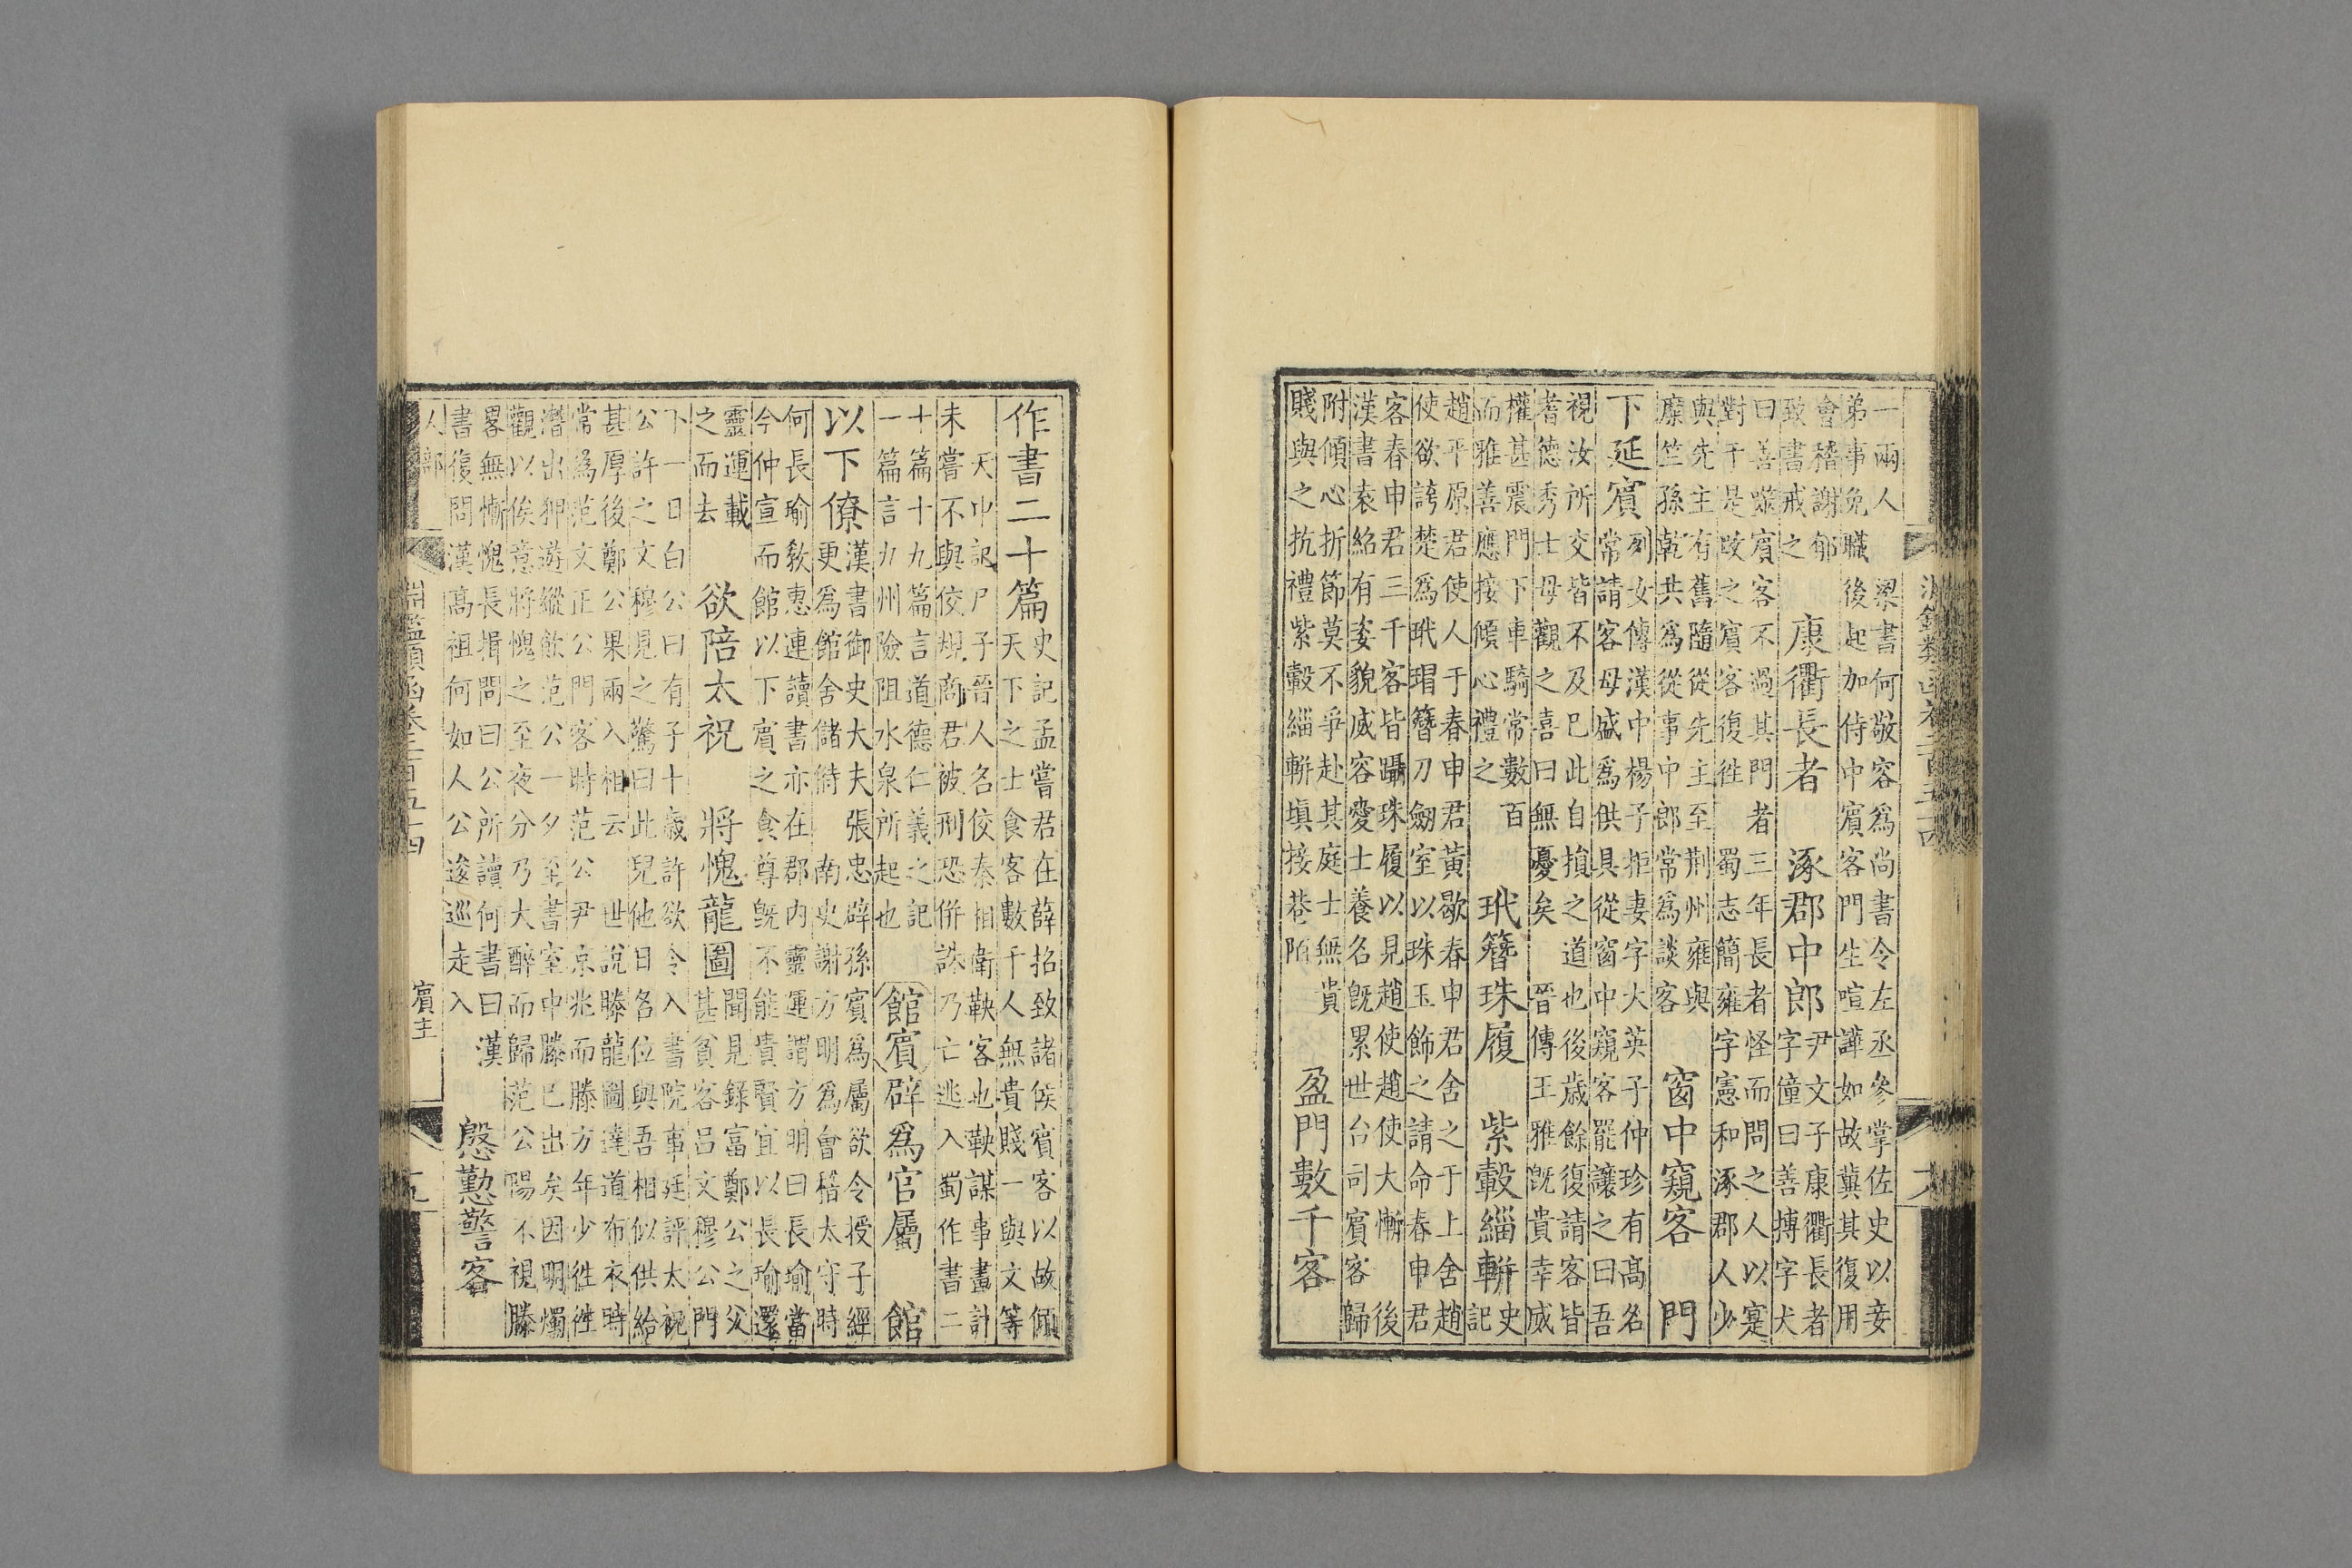 淵鑑類函卷二百五十四
一兩人 梁書何敬容爲尚書令左丞參掌佐史以妾
弟事免職後起加侍中賓客門生喧譁如故冀其復用
會稽謝郁
致書戒之
康衢長者 涿郡中郎
尹文子康衢長者
字僮曰善搏字犬
曰善噬賓客不過其門者三年長者怪而問之人以寔
對于是改之賓客復徃 蜀志簡雍字憲和涿郡人少
與先主有舊隨從先主至荊州雍與
糜竺孫乾共爲從事中郎常爲談客
窗中窺客 門
下延賓
列女傳漢中楊子拒妻字大英子仲珍有高名
常請客母盛爲供具從窗中窺客罷讓之曰吾
視汝所交皆不及已此自損之道也後歲餘復請客皆
耆德秀士母觀之喜曰無憂矣 晉傳王雅旣貴幸威
權甚震門下車騎常數百
而雅善應接傾心禮之
玳簪珠履 紫轂緇軿
史
記
趙平原君使人于春申君黃歇春申君舍之于上舍趙
使欲誇楚爲玳瑁簪刀劒室以珠玉飾之請命春申君
客春申君三千客皆躡珠履以見趙使趙使大慚 後
漢書袁紹有姿貌威容愛士養名旣累世台司賓客歸
附傾心折節莫不爭赴其庭士無貴
賤與之抗禮紫轂緇軿填接巷陌
盈門數千客
作書二十篇
史記孟嘗君在薛招致諸侯賓客以故傾
天下之士食客數千人無貴賤一與文等
天中記尸子晉人名佼秦相衛鞅客也鞅謀事畫計
未嘗不與佼規商君被刑恐併誅乃亡逃入蜀作書二
十篇十九篇言道德仁義之記
一篇言九州險阻水泉所起也
館賓辟爲官屬 館
以下僚
漢書御史大夫張忠辟孫賓爲屬欲令授子經
更爲館舍儲偫 南史謝方明爲會稽太守時
何長瑜敎惠連讀書亦在郡內靈運謂方明曰長瑜當
今仲宣而館以下賓之食尊旣不能貴賢宜以長瑜還
靈運載
之而去
欲陪太祝 將愧龍圖
聞見錄富鄭公之父
甚貧客呂文穆公門
下一日白公曰有子十歲許欲令入書院事廷評太祝
公許之文穆見之驚曰此兒他日名位與吾相似供給
甚厚後鄭公果兩入相云 世說滕龍圖達道布衣時
常爲范文正公門客時范公尹京兆而滕方年少徃徃
潛出狎遊縱飲范公一夕至書室中滕已出矣因明燭
觀以俟意將愧之至夜分乃大醉而歸范公陽不視滕
畧無慚愧長揖問曰公所讀何書曰漢
書復問漢高祖何如人公逡巡走入
慇懃警客
人部
淵鑑類函卷二百五十四
賓主